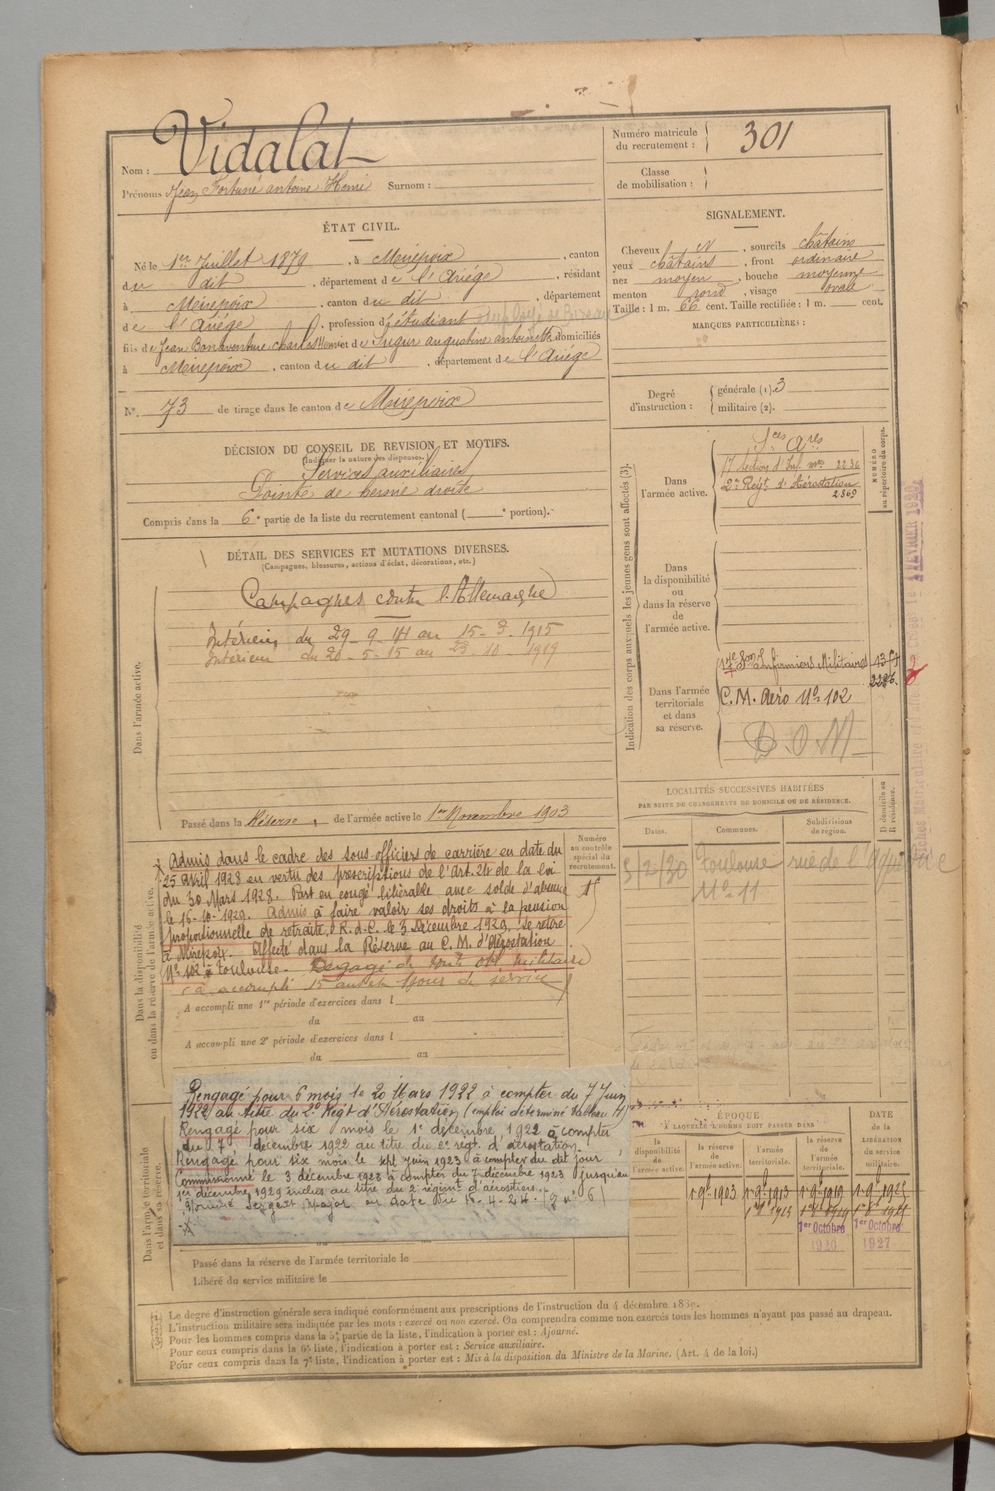 Nom : Vidalat
Prénoms Jean Fortuné antoine Henri Surnom :
Numéro matricule du recrutement : 301
Classe de mobilisation :
ÉTAT CIVIL.
Né le 1er Juillet 1879, à Mirepoix, canton
du dit, département de l'Ariége, résidant
à Mirepoix, canton du dit, département
de l'Ariége, profession d'étudiant Employé de Bureau
fils de Jean Bonaventure Charles et de Ségur augustine antoinette domiciliés
à Mirepoix, canton du dit, département de l'Ariége
N° 73 de tirage dans le canton de Mirepoix
SIGNALEMENT.
Cheveux N, sourcils châtains
yeux châtains, front ordinaire
nez moyen, bouche moyenne
menton rond, visage ovale
Taille : 1 m. 66 cent. Taille rectifiée : 1 m. cent.
MARQUES PARTICULIÈRES :
Degré d'instruction : générale (1). 3
militaire (2).
DÉCISION DU CONSEIL DE REVISION ET MOTIFS.
(Indiquer la nature des dispenses.)
Services auxiliaires
Pointe de hernie droite
Compris dans la 6e partie de la liste du recrutement cantonal ( e portion).
DÉTAIL DES SERVICES ET MUTATIONS DIVERSES.
(Campagnes, blessures, actions d'éclat, décorations, etc.)
Dans l'armée active.
Campagnes contre l'Allemagne
Intérieur du 29-9-14 au 15-3-1915
Intérieur du 20-5-15 au 23-10-1919
Passé dans la Réserve de l'armée active le 1er Novembre 1903
Indication des corps auxquels les jeunes gens sont affectés (3).
NUMÉRO au répertoire du corps.
Dans l'armée active.
17 Section d'Inf. 2236
2e Regt d'Aérostation
2369
Dans la disponibilité ou dans la réserve de l'armée active.
Dans l'armée territoriale et dans sa réserve.
17e Son Infirmiers Militaires
C. M. Aéro N° 102
D. O. M
LOCALITÉS SUCCESSIVES HABITÉES
PAR SUITE DE CHANGEMENTS DE DOMICILE OU DE RÉSIDENCE.
Dates. Communes. Subdivisions de region. D domicile ou R résidence.
3/2/30 Toulouse rue de l'
N° 11
Numéro au contrôle spécial du recrutement.
Dans la disponibilité ou dans la réserve de l'armée active.
Admis dans le cadre des sous-officiers de carrière en date du
25 avril 1928 en vertu des prescriptions de l'Art. 24 de la loi
du 30 Mars 1928. Part en congé libérable avec solde d'absence
le 16-10-1929. Admis à faire valoir ses droits à la pension
proportionnelle de retraite. R.d.C. le 3 Décembre 1929. Se retire
à Mirepoix. Affecté dans la Réserve au C. M. d'Aérostation
N° 102 à Toulouse. Dégagé de toute obl. militaire
(a accompli 15 ans de service
A accompli une 1re période d'exercices dans l
du au
A accompli une 2e période d'exercices dans l
du au
Dans l'armée territoriale et dans sa réserve.
Rengagé pour 6 mois le 20 Mars 1922 à compter du 7 Juin
1922 au titre du 2e Regt d'Aérostation (emploi déterminé tableau
Rengagé pour six mois le 1er décembre 1922 à compter
du 7 décembre 1922 au titre du 2e régt. d'aérostation.
Rengagé pour six mois le sept juin 1923 à compter du dit jour
Commissionné le 3 décembre 1923 à compter du 7 décembre 1923 (jusqu'au
1er décembre 1929 inclus au titre du 2 régiment d'aérostiers.
Nommé Sergent Major en date du 10-4-24.
Passé dans la réserve de l'armée territoriale le
Libéré du service militaire le
ÉPOQUE
A LAQUELLE L'HOMME DOIT PASSER DANS
la disponibilité de l'armée active.
la réserve de l'armée active.
l'armée territoriale.
la réserve de l'armée territoriale.
DATE DE LA LIBÉRATION du service militaire.
1er 9bre 1903 1er 9bre 1913 1er 9bre 1919
1er Octobre 1926
1er Octobre 1927
Le degré d'instruction générale sera indiqué conformément aux prescriptions de l'instruction du 4 décembre 1889.
L'instruction militaire sera indiquée par les mots : exercé ou non exercé. On comprendra comme non exercés tous les hommes n'ayant pas passé au drapeau.
Pour les hommes compris dans la 5e partie de la liste, l'indication à porter est : Ajourné.
Pour ceux compris dans la 6e liste, l'indication à porter est : Service auxiliaire.
Pour ceux compris dans la 7e liste, l'indication à porter est : Mis à la disposition du Ministre de la Marine. (Art. 4 de la loi.)